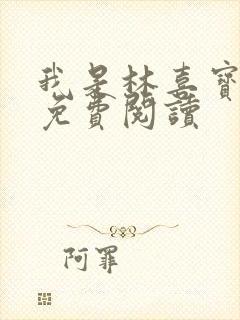 我是林喜寶
免費閱讀
阿罪